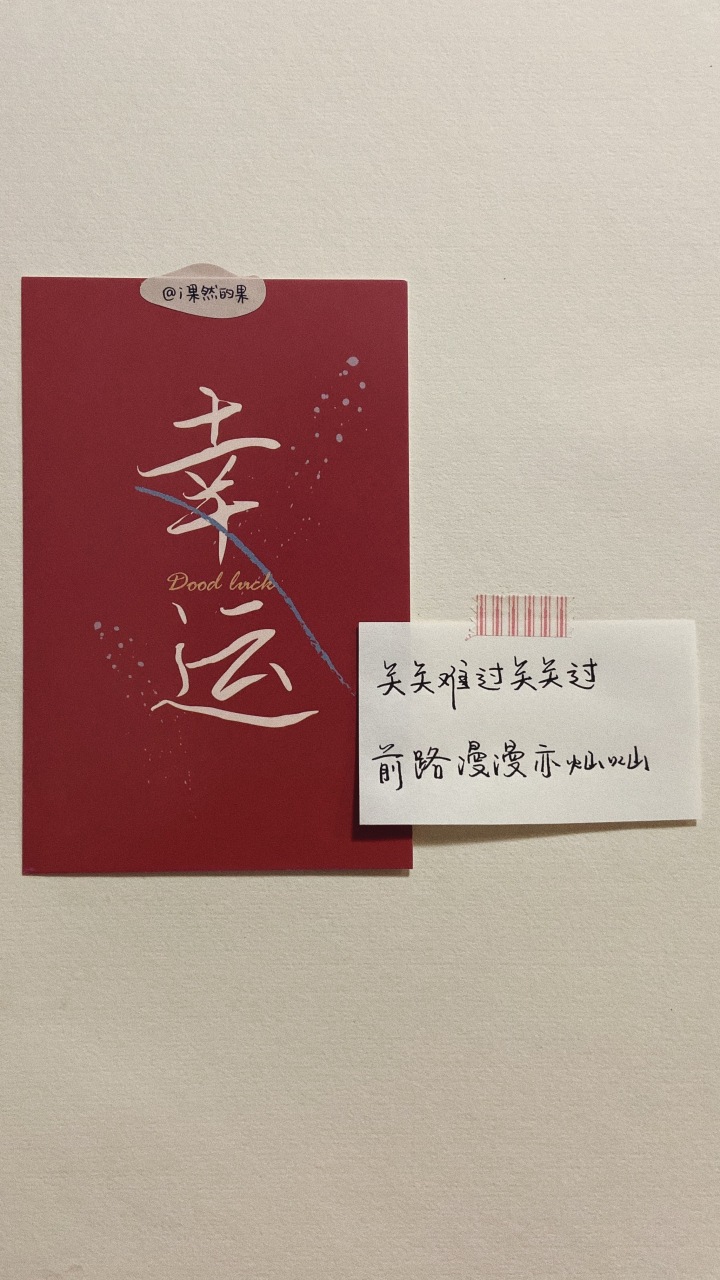 @i果然的果
幸
Dood luck
运
关关难过关关过
前路漫漫亦灿灿